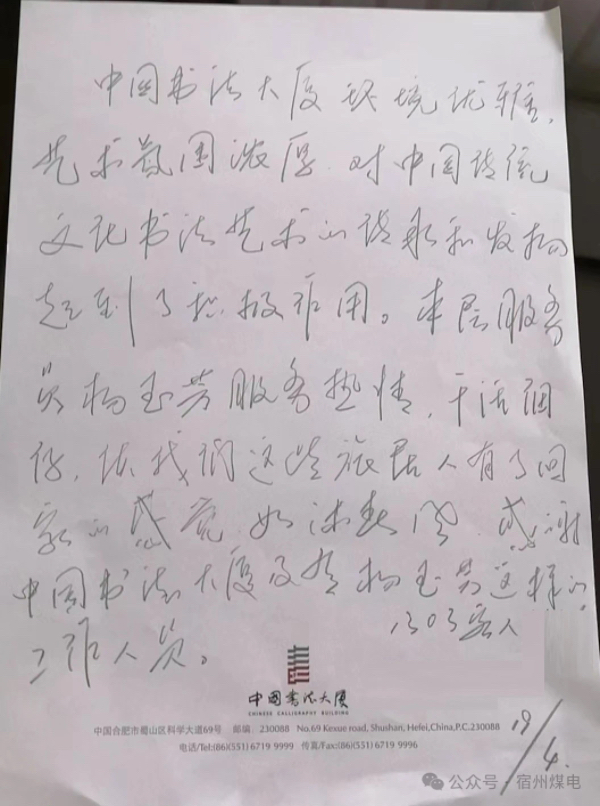 中国书法大厦环境优雅,
艺术氛围浓厚,对中国传统
文化书法艺术的传承和发扬
起到了积极作用。本层服务
员杨玉芳服务热情,干活细
仔,使我们这些旅居人有了回
家的感觉,如沐春风,感谢
中国书法大厦及有杨玉芳这样的
工作人员。
1303客人
中国书法大厦
CHINESE CALLIGRAPHY BUILDING
中国合肥市蜀山区科学大道69号 邮编 230088 No.69 Kexue road, Shushan, Hefei,China,P.C.230088
电话/Tel:(86)(551) 6719 9999 传真/Fax:(86)(551) 6719 9996
19/4.
公众号·宿州煤电